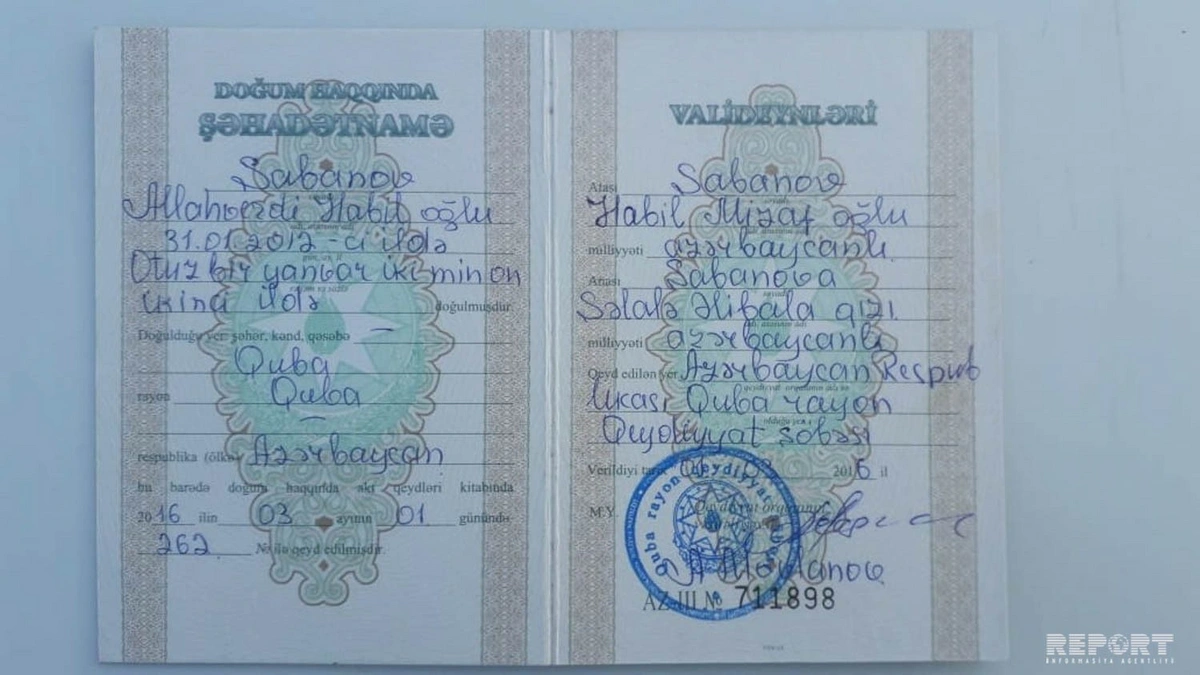 DOĞUM HAQQINDA
ŞƏHADƏTNAMƏ
Şabanov
Allahverdi Habil oğlu
31.01.2012-ci ildə
Otuz bir yanvar iki min on
ikinci ildə doğulmuşdur
Doğulduğu yer: şəhər, kənd, qəsəbə —
Quba
rayon Quba
—
respublika (ölkə) Azərbaycan
bu barədə doğum haqqında akt qeydləri kitabında
2016 ilin 03 ayının 01 günündə
262 № ilə qeyd edilmişdir.
VALİDEYNLƏRİ
Atası Şabanov
Habil oğlu
milliyyəti azərbaycanlı
Anası Şabanova
Əlibala qızı
milliyyəti azərbaycanlı
Qeyd edilən yer Azərbaycan Respub
likası Quba rayon
Qeydiyyat şöbəsi
Verildiyi 2016 il
M.Y. Qeydiyyat orqanının
Quba rayon Qeydiyyat
AZ-III № 711898
REPORT
İNFORMASİYA AGENTLİYİ